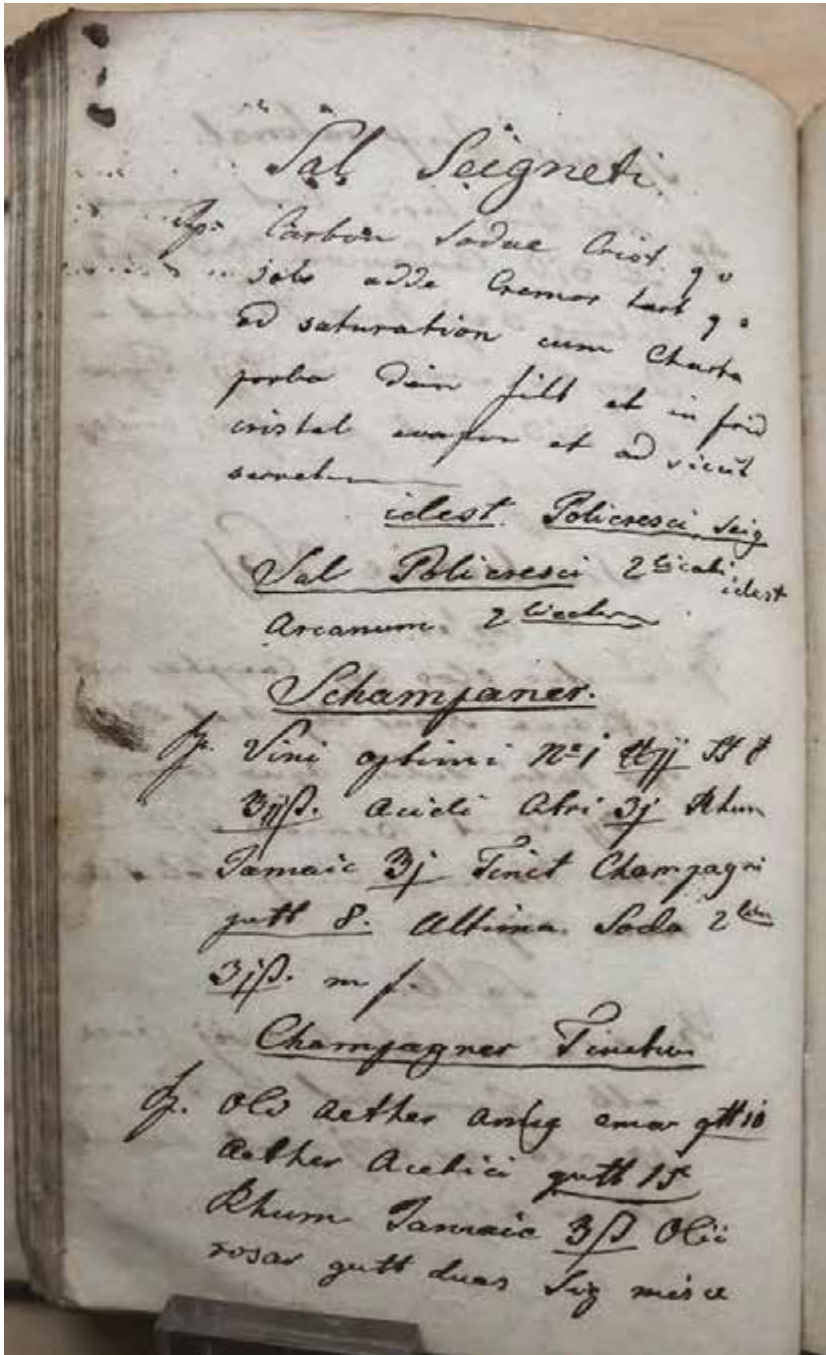 Sal Seigneti.
Rp. Carbon Sodae Crist. q s
solv adde Cremor tart q s
ad saturation cum Charta
proba dein filt et in frid
cristal evapor et ad siccit
servetur
idest Policresci Seig
Sal Policresci idest
Arcanum
Schampaner.
Rp. Vini optimi No j
ʒijß. Acidi Citri ʒj Rhum
Jamaic ʒj Tinct Champagri
gutt 8. Soda
ʒjß. m f.
Champagner Tinctur
Rp. Ol Aether amyg amar gtt 10
Aether Acetici gutt 15
Rhum Jamaic ʒß Olii
rosar gutt duas Sig misce